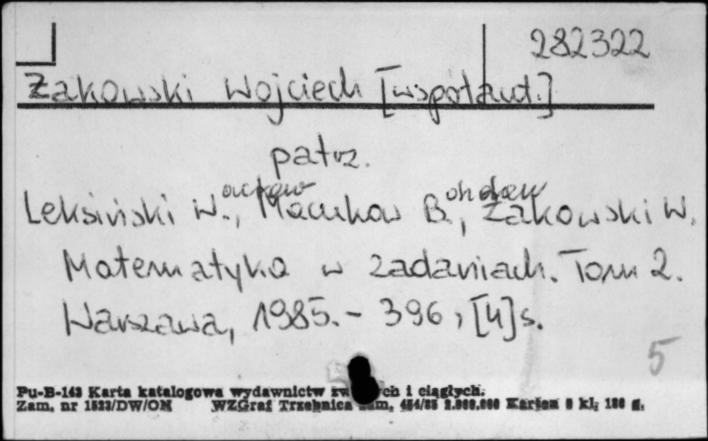 282322
Żakowski Wojciech [współaut.]
patrz.
Leksiński W., Macukow B., Żakowski W.
Matematyka w zadaniach. Tom 2.
Warszawa, 1985. – 396, [4] s.
5
Pu-B-143 Karta katalogowa wydawnictw zw ych i ciągłych.
Zam. nr 1523/DW/ON WZGraf Trzebnica zam. 454/85 2.000.000 Karton kl. 180 g.